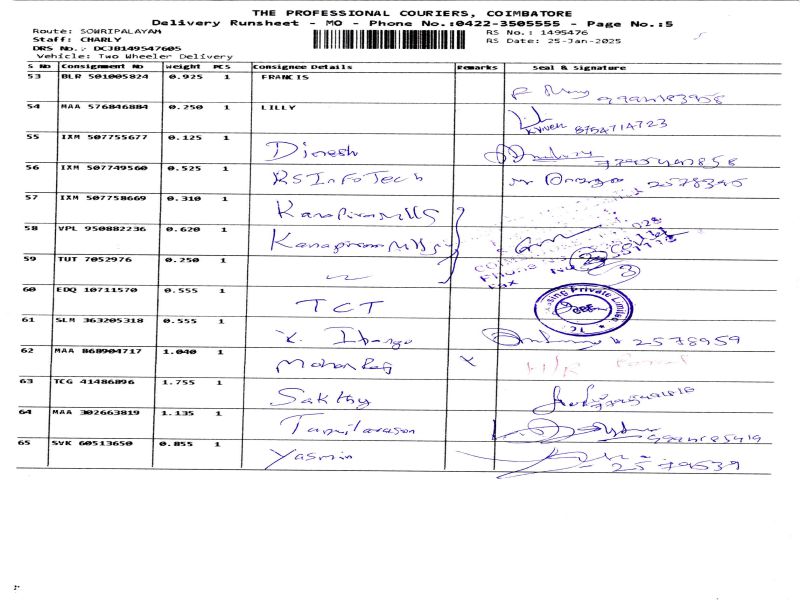 THE PROFESSIONAL COURIERS, COIMBATORE
Delivery Runsheet - MO - Phone No.:0422-3505555 - Page No.:5
Route: SOWRIPALAYAM RS No.: 1495476
Staff: CHARLY RS Date: 25-Jan-2025
DRS No.: DCJB149547605
Vehicle: Two Wheeler Delivery
S No Consignment No Weight PCS Consignee Details Remarks Seal & Signature
53 BLR 501005824 0.925 1 FRANCIS
54 MAA 576846884 0.250 1 LILLY
8754714723
55 IXM 507755677 0.125 1 Dinesh
56 IXM 507749560 0.525 1 RSInfoTech 2578345
57 IXM 507758669 0.310 1
58 VPL 950882236 0.620 1
59 TUT 7052976 0.250 1
60 EDQ 10711570 0.555 1 TCT
Private Limited
61 SLM 363205318 0.555 1 2578959
62 MAA 868904717 1.040 1 Mohan Raj X
63 TCG 41486896 1.755 1 Sakthy
64 MAA 302663819 1.135 1 Tamilarasan
65 SVK 60513650 0.855 1 Yasmin 2579539